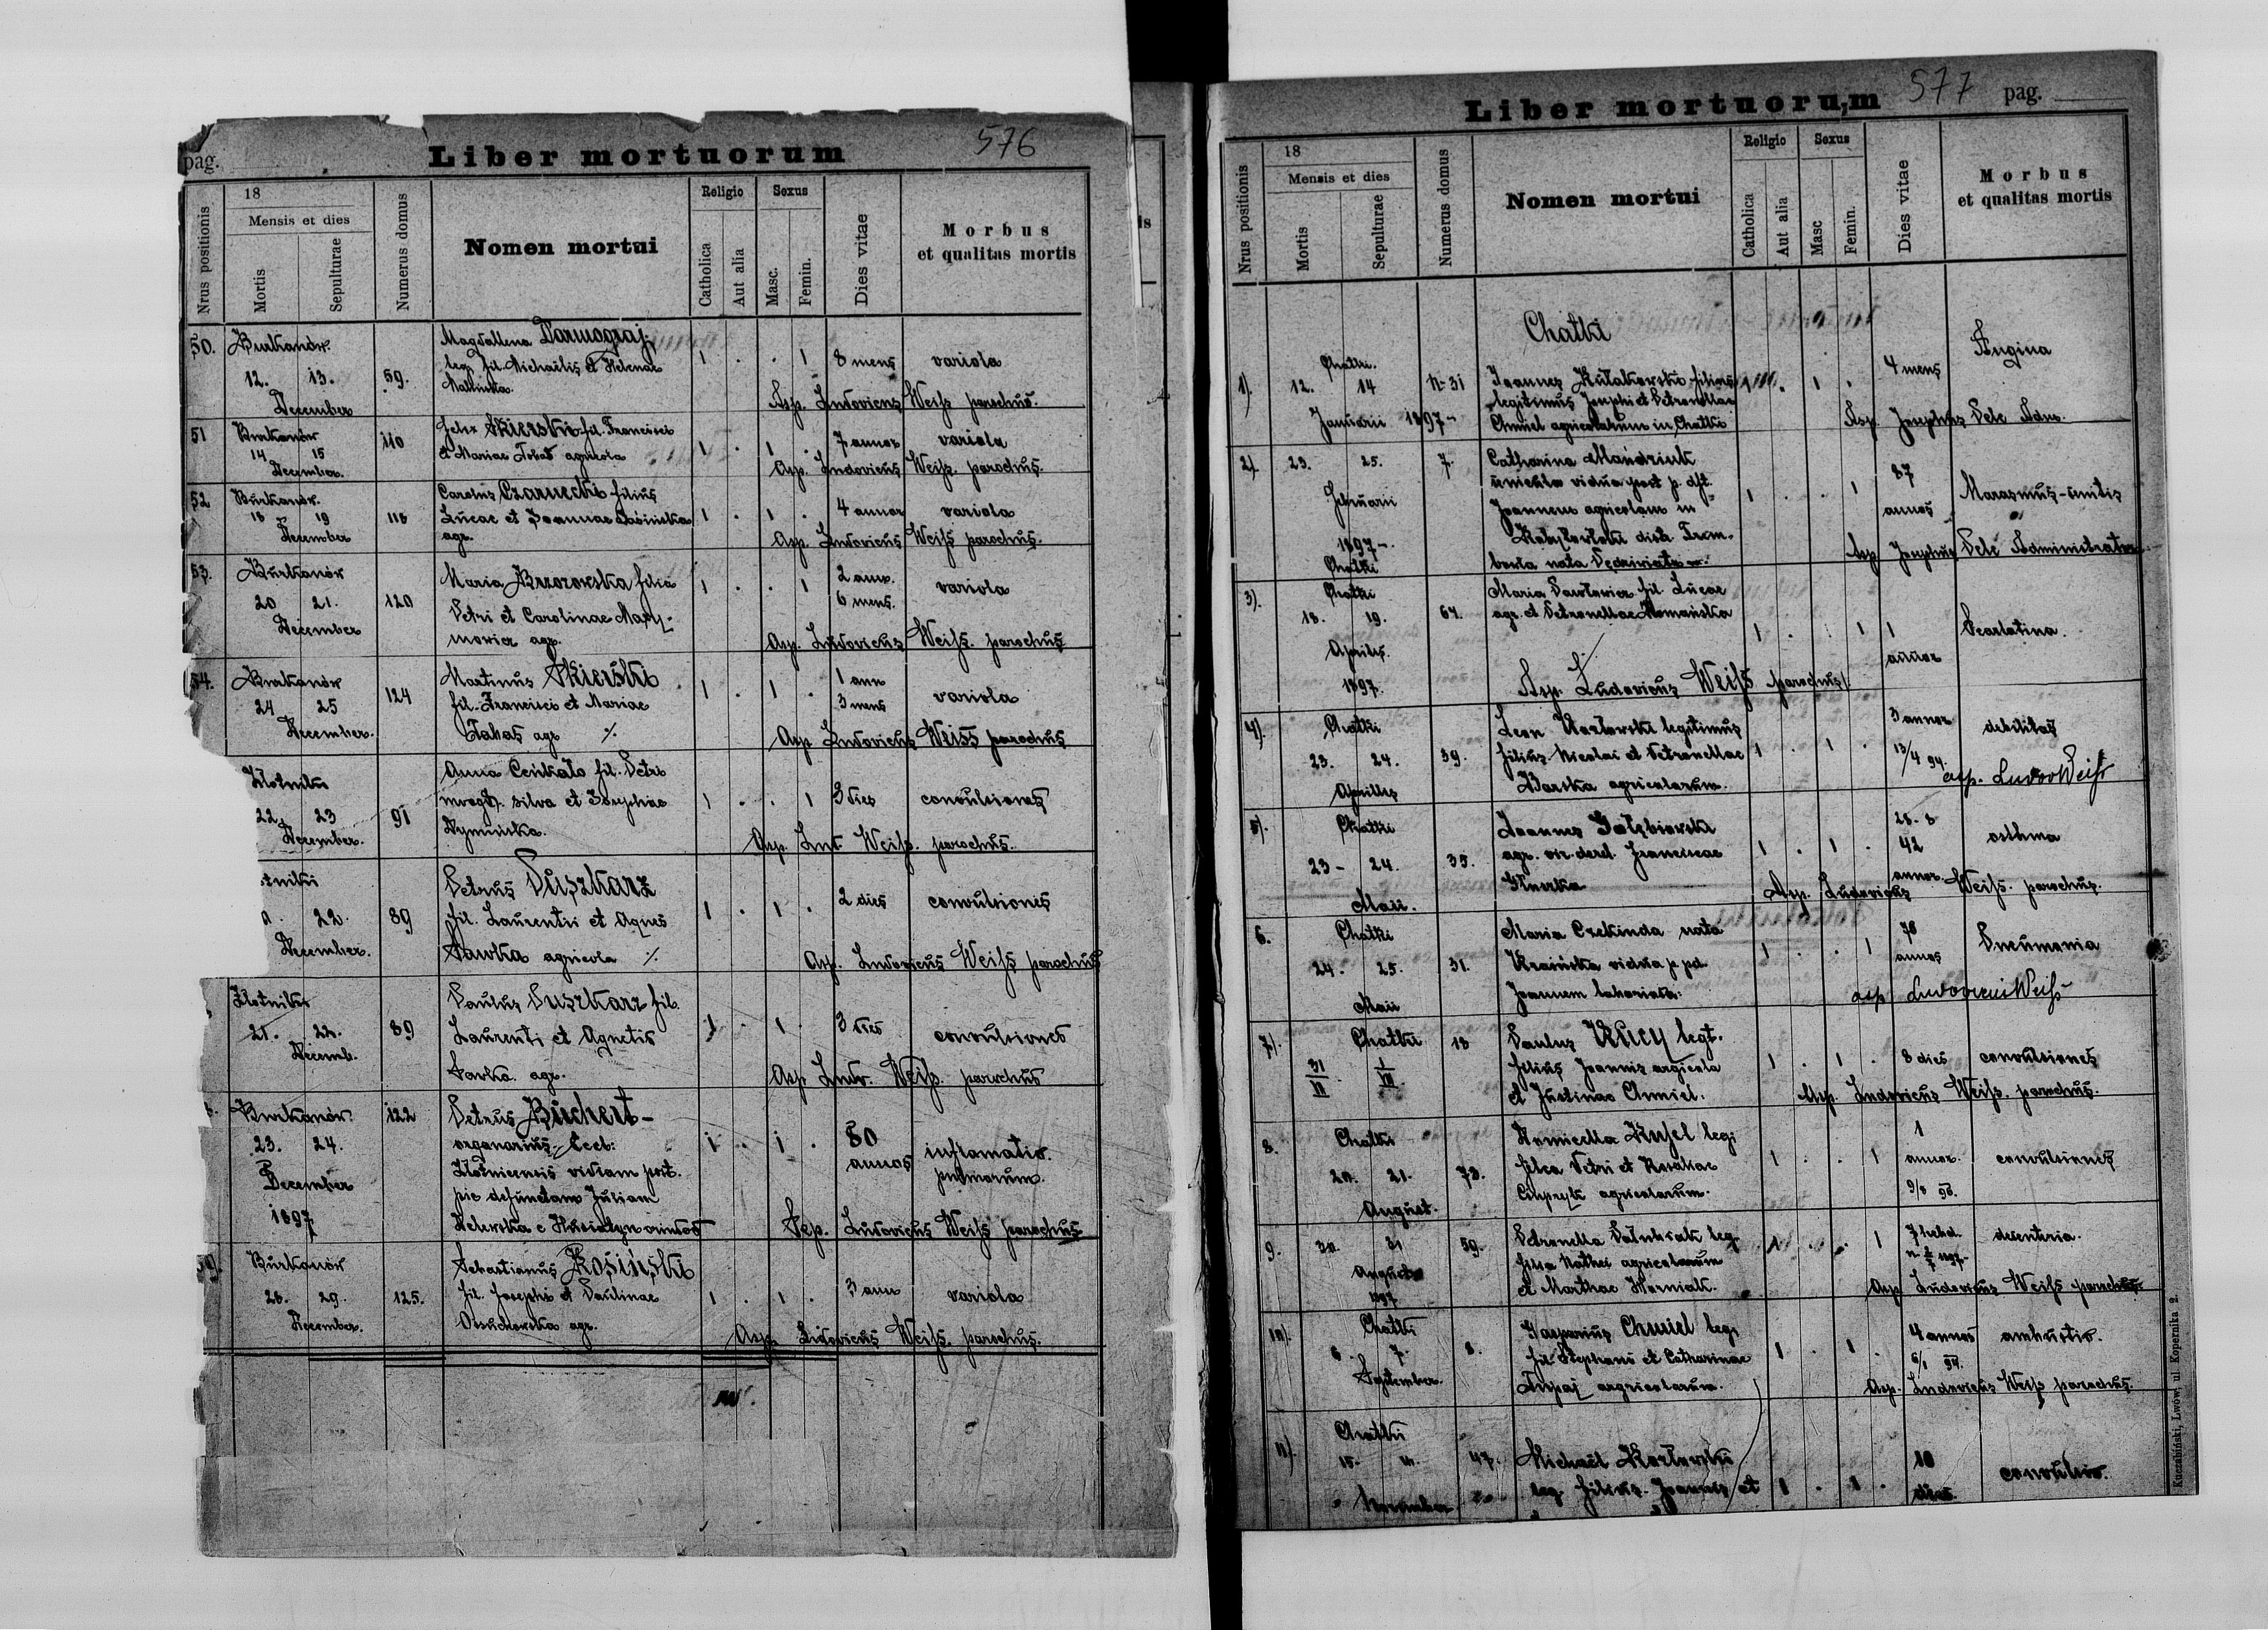 pag.
Liber mortuorum
576
Nrus positionis
18
Mensis et dies
Mortis
Sepulturae
Numerus domus
Nomen mortui
Religio
Catholica
Aut alia
Sexus
Masc.
Femin.
Dies vitae
Morbus
et qualitas mortis
50. Burkanów. Magdallena Darmograj
leg. fil. Michaelis et Helenae 1 . . 1 8 mens variola
12. 13. 59.
December Asp. Ludovicus Weiss parochus.
51 Burkanów 110 Felix Skierski fil. Francisci
14 15 et Mariae agricola 1 . 1 . 7 annor variola
December. Asp. Ludovicus Weiss. parochus.
52 Burkanów. Carolus Czarnecki filius
18 19 118 Lucae et Joannae 1 . 1 . 4 annor variola
December agr. Asp. Ludovicus Weiss parochus.
53. Burkanów Maria Brzozowska filia 1 . . 1 2 ann. variola
20 21. 120 6 mens.
December Petri et Carolinae
agr. Asp. Ludovicus Weiss. parochus
54. Burkanów Martinus Skierski 1 . 1 . 1 ann variola
24 25 124 fil. Francisci et Mariae 3 mens
December. agr ./. Asp Ludovicus Weiss parochus
Złotniki Anna fil. Petri
silva et Josephae 1 . . 1 3 dies convulsiones
22 23 91
December. Asp. Lud. Weiss. parochus.
Petrus Puszkarz
22. 89 fil. Laurentii et Agnes 1 . 1 . 2 dies convulsiones
December. Sawka agricola ./. Asp. Ludovicus Weiss parochus
Złotniki Paulus Puszkarz fil.
21. 22. 89 Laurenti et Agnetis 1 . 1 . 3 dies convulsiones
Decemb. Sawka. agr. Asp. Ludv. Weiss. parochus
Burkanów. 122 Petrus Buchert -
23. 24. organarius Eccl: 1 . 1 . 80 annos inflamatio
December post. pulmorum.
1897 pie defunctam Juliam
Asp. Ludovicus Weiss parochus
Burkanów Sebastianus Kosiński
28. 29. 125. fil. Josephi et Paulinae 1 . 1 . 3 ann variola
December. agr. Asp. Ludovicus Weiss. parochus.
Liber mortuorum
577
pag.
Nrus positionis
18
Mensis et dies
Mortis
Sepulturae
Numerus domus
Nomen mortui
Religio
Catholica
Aut alia
Sexus
Masc
Femin.
Dies vitae
Morbus
et qualitas mortis
Chatki
1). Chatki. 4 mens Angina
12. 14 N. 31 Joannes Kułakowski filius 1 . 1 .
legitimus Josephi et Petronellae
Januarii 1897 Chmiel agricolarum in Chatki Asp. Josephus Pele Adm.
2). 23. 25. 7. Catharina Mandziuk
vidua post p. dft. 1 . . 1 87
Februarii Joannem agricolam in annos Marasmus
1897 distr. Trem-
Chatki bowla nata Asp Josephus Pele Administrator
3). Chatki Maria Pawłowicz fil. Lucae
18. 19. 67. agr. et Petronellae Romańska
1 . . 1 1 Scarlatina.
Aprilis. annor
1897. Asp. Ludovicus Weiss parochus
4). Chatki Leon Kozłowski legitimus 3 annor debilitas
23. 24. 39. filius Nicolai et Petronellae 1 . 1 . 13/4 94.
Aprilles Barska agricolarum. asp. Ludov Weiss
5). Chatki Joannes 28-8
23 - 24. 35. agr. vir. derel. Franciscae 1 . 1 . 42 asthma
Maii. annor. Asp. Ludovicus Weiss. parochus.
6. Chatki Maria Czekinda nata 78
24. 25. 31. vidua p. pd 1 . . 1 annos Pneumonia
Maii Joannem asp Ludovicus Weiss
7). Chatki 18 Paulus legt.
31 1 filius Joannis agricola 1 . 1 . 8 dies convulsiones
VI. VII. et Justinae Chmiel. Asp. Ludovicus Weiss. parochus.
8. Chatki leg. 1
20. 21. 73. filia Petri et Rosaliae 1 . . 1 annor. convulsiones
August. agricolarum. 9/8 96.
9. 30. 31 59. Petronella leg. 1 . . 1 7 hebd. desenteria.
August filia Mathei agricolarum
1897 et Marthae Asp Ludovicus Weiss parochus
10). Chatki Gasparius Chmiel leg. 4 annos ambustio.
6. 7. 8. fil. Stephani et Catharinae 1 . 1 . 6/1 94.
September. agricolarum. Asp. Ludovicus Weiss parochus.
11). Chatki
15. 47. Michaël Kozłowski 10
November leg. filius. Joannis et 1 . 1 . dies. convulsio.
Kuczabiński, Lwów, ul. Kopernika 2.